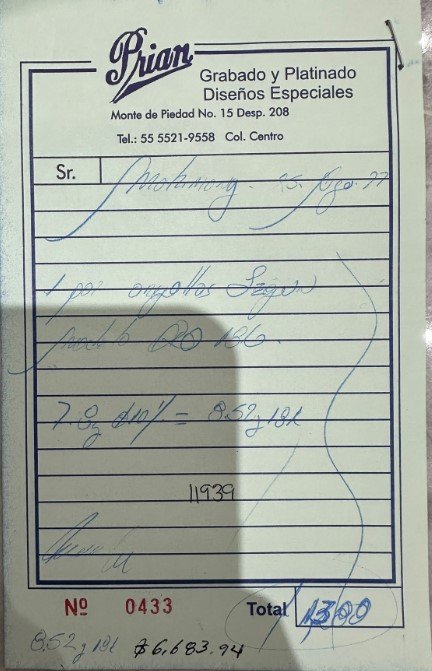 Prian
Grabado y Platinado
Diseños Especiales
Monte de Piedad No. 15 Desp. 208
Tel.: 55 5521-9558 Col. Centro
Sr.
1 par Segun
ORO 18k.
7.8g 10% = 8.52g 18k
11939
Nº 0433 Total 1300
8.52g 18k $6,683.94